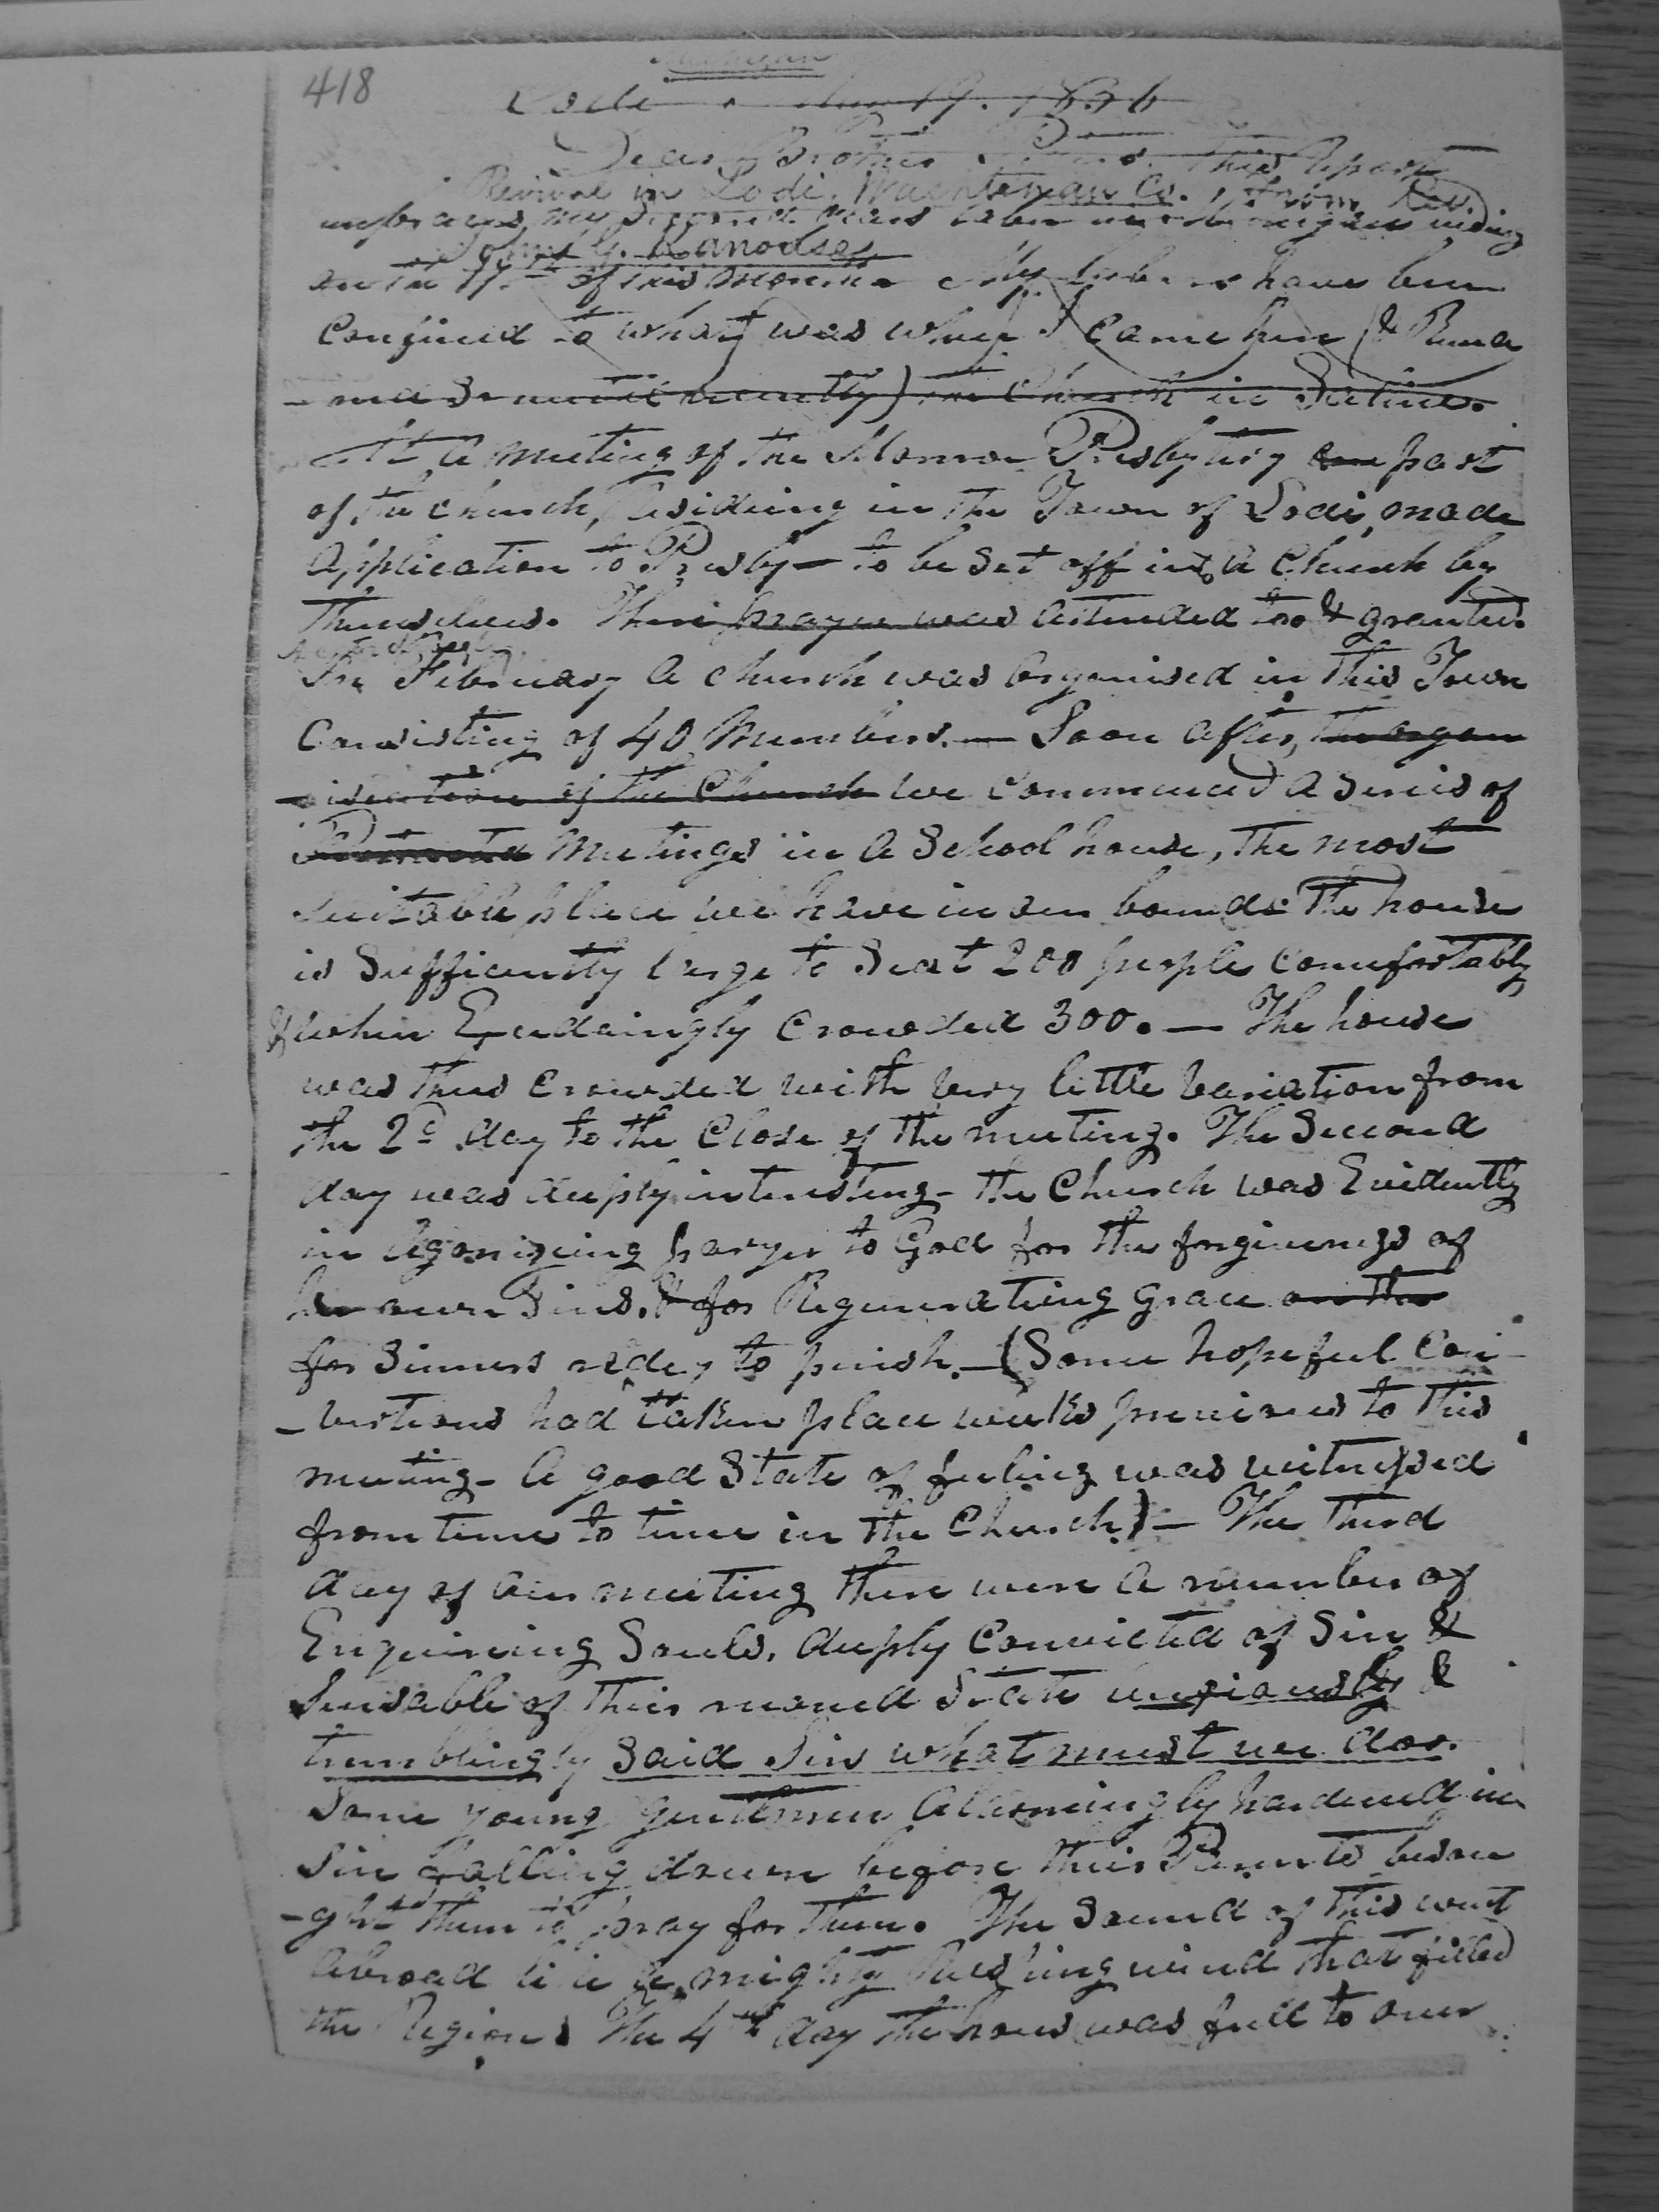 418
Michigan
Lodi May 19. 1836
Dear Brother This Report
Revival in Lodi, Washtenaw Co. from Rev.
embraces my Second years labor in Michigan ending
G. Kanouse
on the 19th of this Month. My labors have been
Confined to what was when I came here (& Rema
-ined so until recently) the Church in Saline.
At a meeting of the Monroe Presbytery part
of the church, Residing in the Town of Lodi, made
Application to Presby— to be Set off into a Church by
themselves. Their prayer was attended too & granted.
In February a church was organised in this Town
Consisting of 40 Members. — Soon after, the organ
-isation of the Church we Commenced a Series of
Protracted Meetings in a School house, the most
Suitable place we have in our bounds. The house
is Sufficiently large to Seat 200 people Comfortably,
& when Exceedaingly Crowded 300. — The house
was thus Crowded with very little variation from
the 2d day to the Close of the meeting. The Second
day was deeply intresting - the Church was Evidently
in Agonizeing prayer to God for the forgiveness of
her own Sins. & for Regenerating Grace on the
for Sinners redey to perish. — (Some hopeful Con
-vertions had taken place weeks previous to this
meeting - A good State of feeling was witnessed
from time to time in the Church) — The Third
day of our meeting there were a number of
Enquireing Souls. deeply Convicted of Sin &
Sensable of their ruined State anxiously &
tremblingly Said Sirs what must we doo.
Some young gentlemen Allarmingly hardened in
Sin falling down before their Parents besou
-ght them to pray for them. The Sound of this went
Abroad like a mighty Rushing wind that filled
the Region. The 4th day the hous was full to over